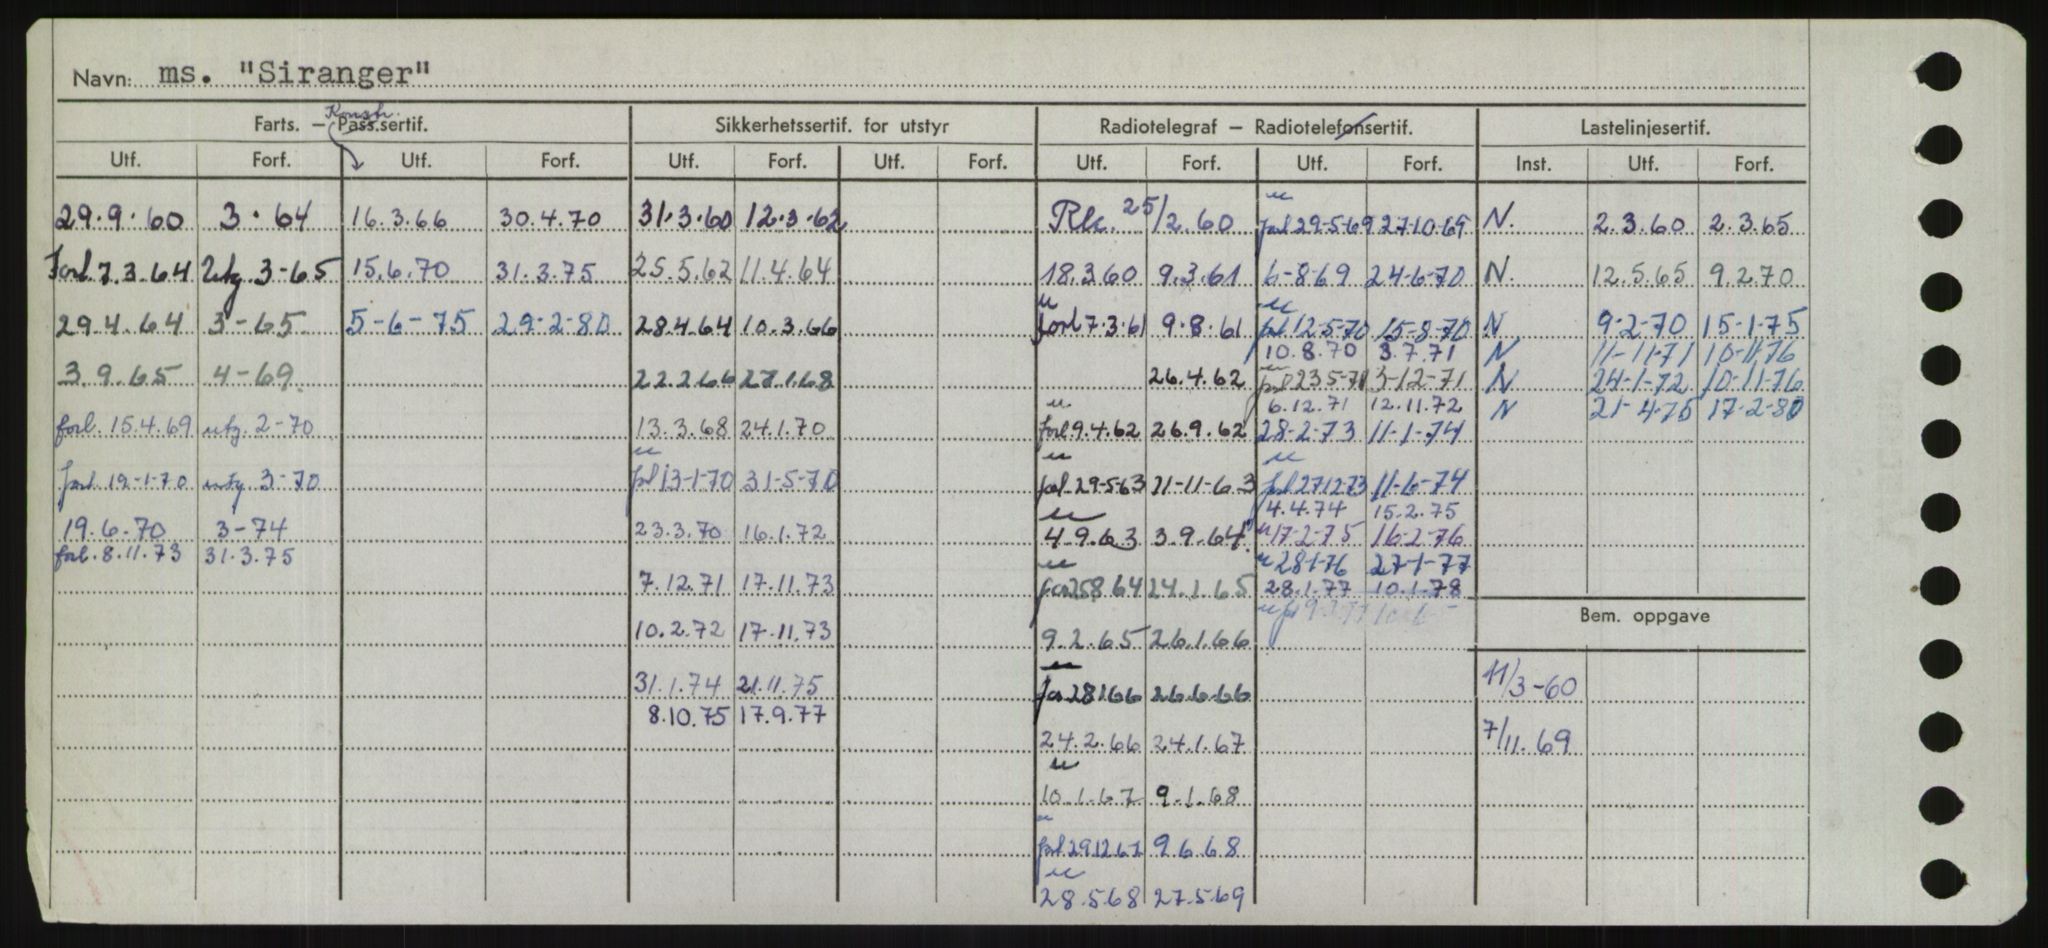 Navn: ms. "Siranger"
Farts. — Pass.sertif. Konstr. Sikkerhetssertif. for utstyr Radiotelegraf — Radiotelefonsertif. Lastelinjesertif.
Utf. Forf. Utf. Forf. Utf. Forf. Utf. Forf. Utf. Forf. Utf. Forf. Inst. Utf. Forf.
29.9.60 3.64 16.3.66 30.4.70 31.3.60 12.3.62 25/2.60 forl 29-5-69 27-10-69 N. 2.3.60 2.3.65
Forl. 7.3.64 Utg. 3-65 15.6.70 31.3.75 25.5.62 11.4.64 18.3.60 9.3.61 6-8-69 24-6-70 N. 12.5.65 9.2.70
29.4.64 3-65 5-6-75 29-2-80 28.4.64 10.3.66 forl 7.3.61 9.8.61 forl 12-5-70 15-8-70 N 9-2-70 15-1-75
10.8.70 3.7.71 N 11-11-71 10-11-76
3.9.65 4-69. 22.2.66 27.1.68 26.4.62 forl 23.5-71 3-12-71 N 24-1-72 10-11-76
6.12.71 12.11.72 N 21-4-75 17-2-80
forl. 15.4.69 utg. 2-70 13.3.68 24.1.70 forl 9.4.62 26.9.62 28-2-73 11-1-74
forl. 19-1-70 utg. 3-70 forl 13-1-70 31-5-70 forl. 29-5-63 11-11-63 forl 27-12-73 11-6-74
4.4.74 15.2.75
19.6.70 3-74 23.3.70 16.1.72 4.9.63 3.9.64 17-2-75 16-2-76
forl. 8.11.73 31.3.75 28-1-76 27-1-77
7.12.71 17.11.73 for 25864 24.1.65 28.1.77 10.1.78
Bem. oppgave
10.2.72 17.11.73 9.2.65 26.1.66
31.1.74 21.11.75 for 28166 26.6.66 11/3-60
8.10.75 17.9.77
24.2.66 24.1.67 7/11.69
10.1.67 9.1.68
forl 291267 9.6.68
28.5.68 27.5.69